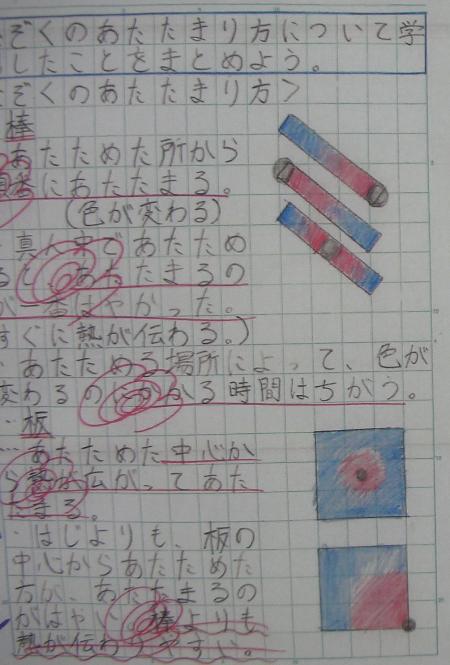 ぞくのあたたまり方について学
したことをまとめよう。
ぞくのあたたまり方>
棒
あたためた所から
順番にあたたまる。
(色が変わる)
・真ん中であたため
ると、あたたまるの
が一番はやかった。
すぐに熱が伝わる。)
・あたためる場所によって、色が
変わるのにかかる時間はちがう。
・板
・あたためた中心か
ら熱が広がってあた
たまる。
・はじよりも、板の
中心からあたためた
方が、あたたまるの
がはやい。棒よりも
熱が伝わりやすい。